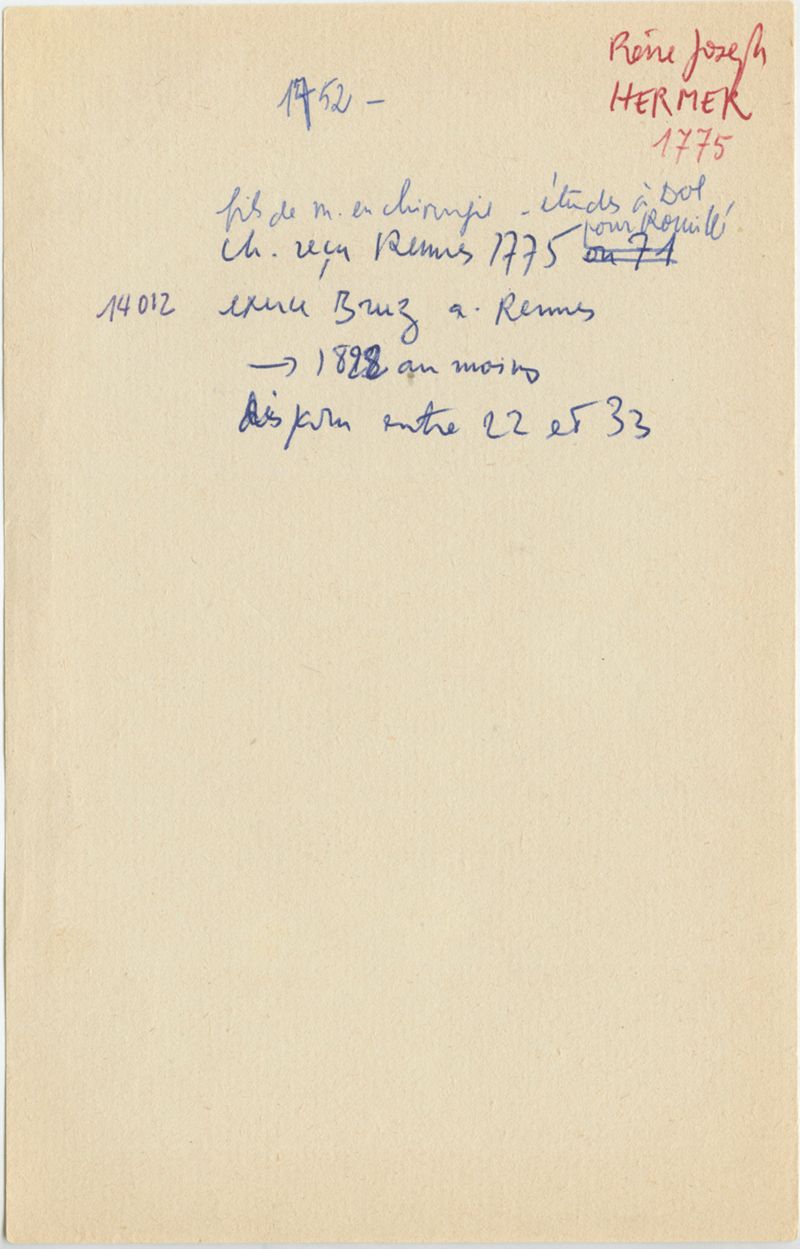 Pierre Joseph
HERMER
1775
1752 -
fils de m. en chirurgie - études à Dol
pour Romillé
ch. reçu Rennes 1775 ou 71
14012 exerce Bruz a. Rennes
→ 1822 au moins
disparu entre 22 et 33